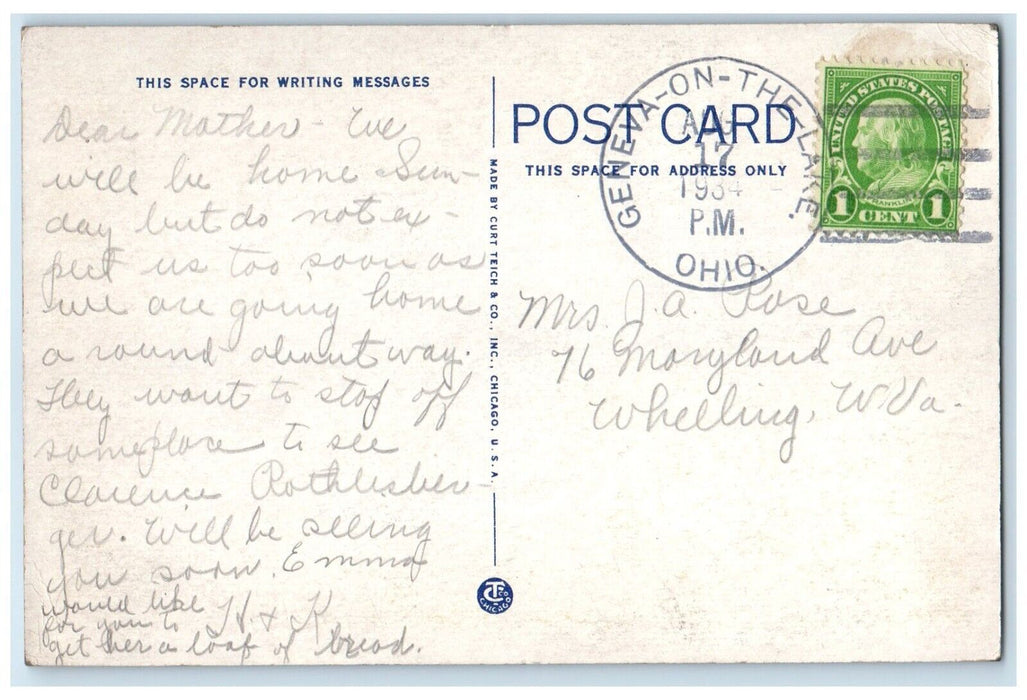 THIS SPACE FOR WRITING MESSAGES
Dear Mother - We
will be home Sun-
day but do not ex-
pect us too soon as
we are going home
a round about way.
They want to stop off
someplace to see
Clarence Rothlisber-
ger. Will be seeing
you soon. Emma
would like H. & K
for you to
get her a loaf of bread.
MADE BY CURT TEICH & CO., INC., CHICAGO, U.S.A.
CT CO
CHICAGO
POST CARD
THIS SPACE FOR ADDRESS ONLY
GENEVA-ON-THE-LAKE.
AUG
17
1934
P.M.
OHIO.
UNITED STATES POSTAGE
FRANKLIN
1 CENT 1
Mrs. J. A. Rose
76 Maryland Ave
Wheeling, W. Va.